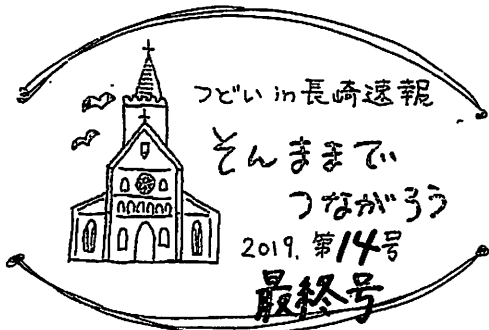 つどい in 長崎速報
そんままでい
つながろう
2019. 第14号
最終号